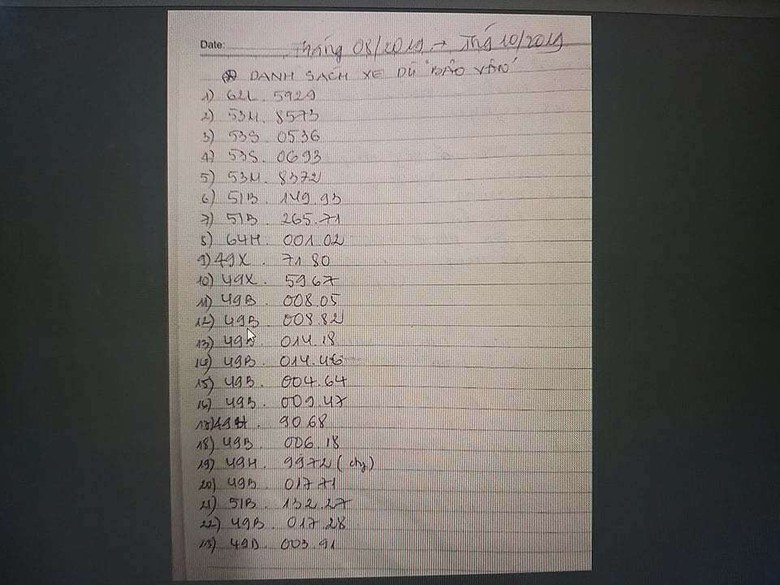 Date: Tháng 08/2019 → Thg 10/2019
⊛ DANH SÁCH XE DÙ "BẢO VÂN"
1) 62L. 5929
2) 53M. 8573
3) 53S. 0536
4) 53S. 0693
5) 53M. 8372
6) 51B. 149.93
7) 51B. 265.71
8) 64H. 001.02
9) 49X. 71 80
10) 49X. 5967
11) 49B. 008.05
12) 49B. 008.82
13) 49B. 014.18
14) 49B. 014.46
15) 49B. 004.64
16) 49B. 009.47
17) 49H. 90 68
18) 49B. 006.18
19) 49H. 9972 (chy)
20) 49B. 01771
21) 51B. 132.27
22) 49B. 017.28
13) 49B. 003.91